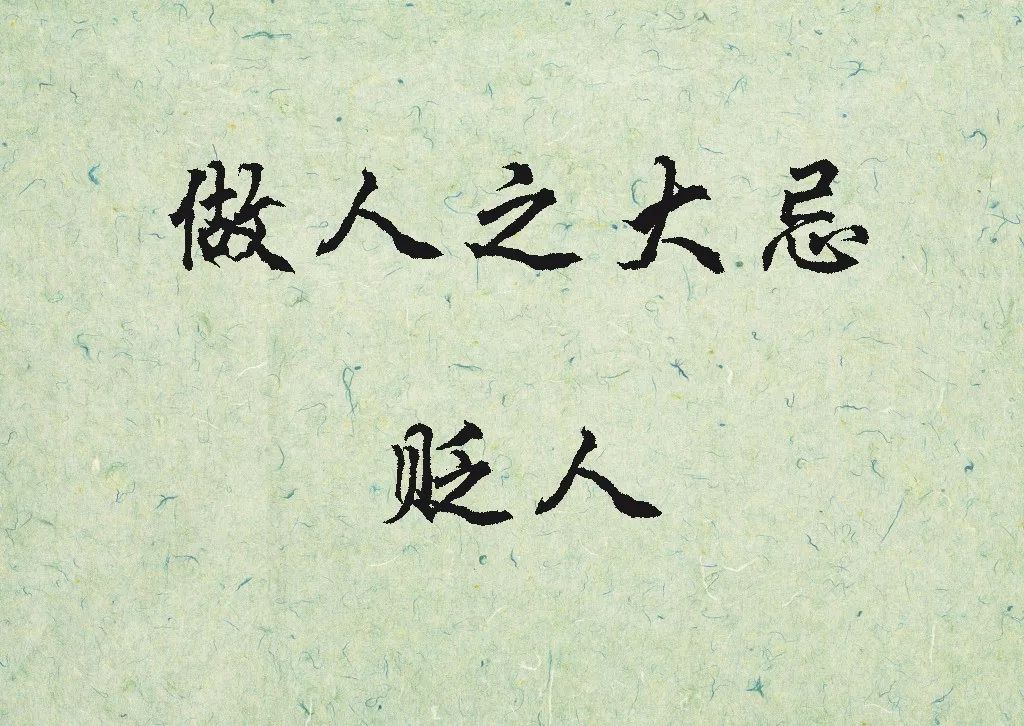 做人之大忌
贬人